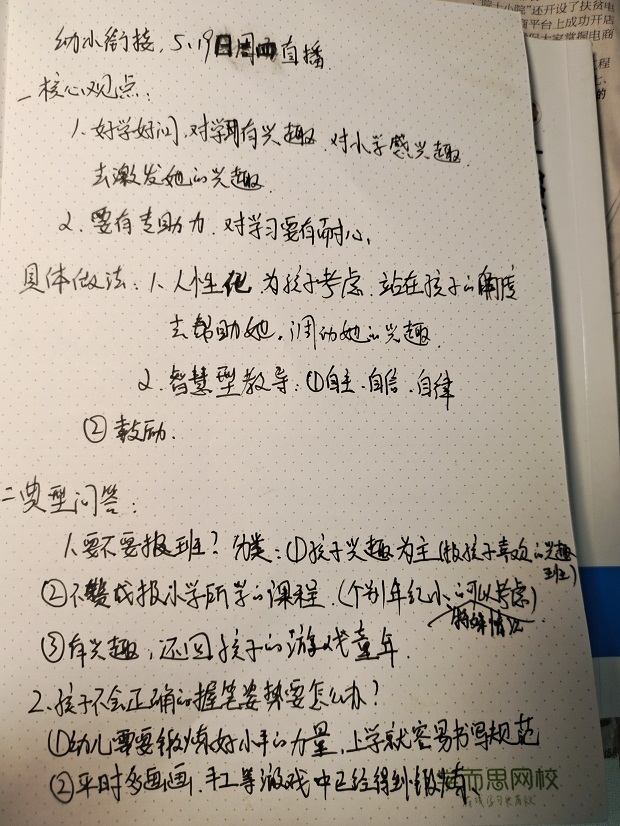 幼小衔接, 5.19日周四直播.
一核心观点:
1. 好学好问, 对学习有兴趣. 对小学感兴趣.
去激发她的兴趣.
2. 要有专助力. 对学习要有耐心.
具体做法: 1. 人性化 为孩子考虑. 站在孩子的角度
去帮助她, 调动她的兴趣.
2. 智慧型教导: ①自主. 自信. 自律
②鼓励.
二典型问答:
1. 要不要报班? 分类: ①孩子兴趣为主(报孩子喜欢的兴趣班)
②不赞成报小学所学的课程. (个别年纪小的可以考虑)
特殊情况
③有兴趣, 还回孩子的游戏童年.
2. 孩子不会正确的握笔姿势要怎么办?
①幼儿需要锻炼好小手的力量, 上学就容易书写规范
②平时多画画, 手工等游戏中已经得到锻炼.
而思网校
院士小院”还开设了扶贫电
商平台上成功开店
大家掌握电商
程
的